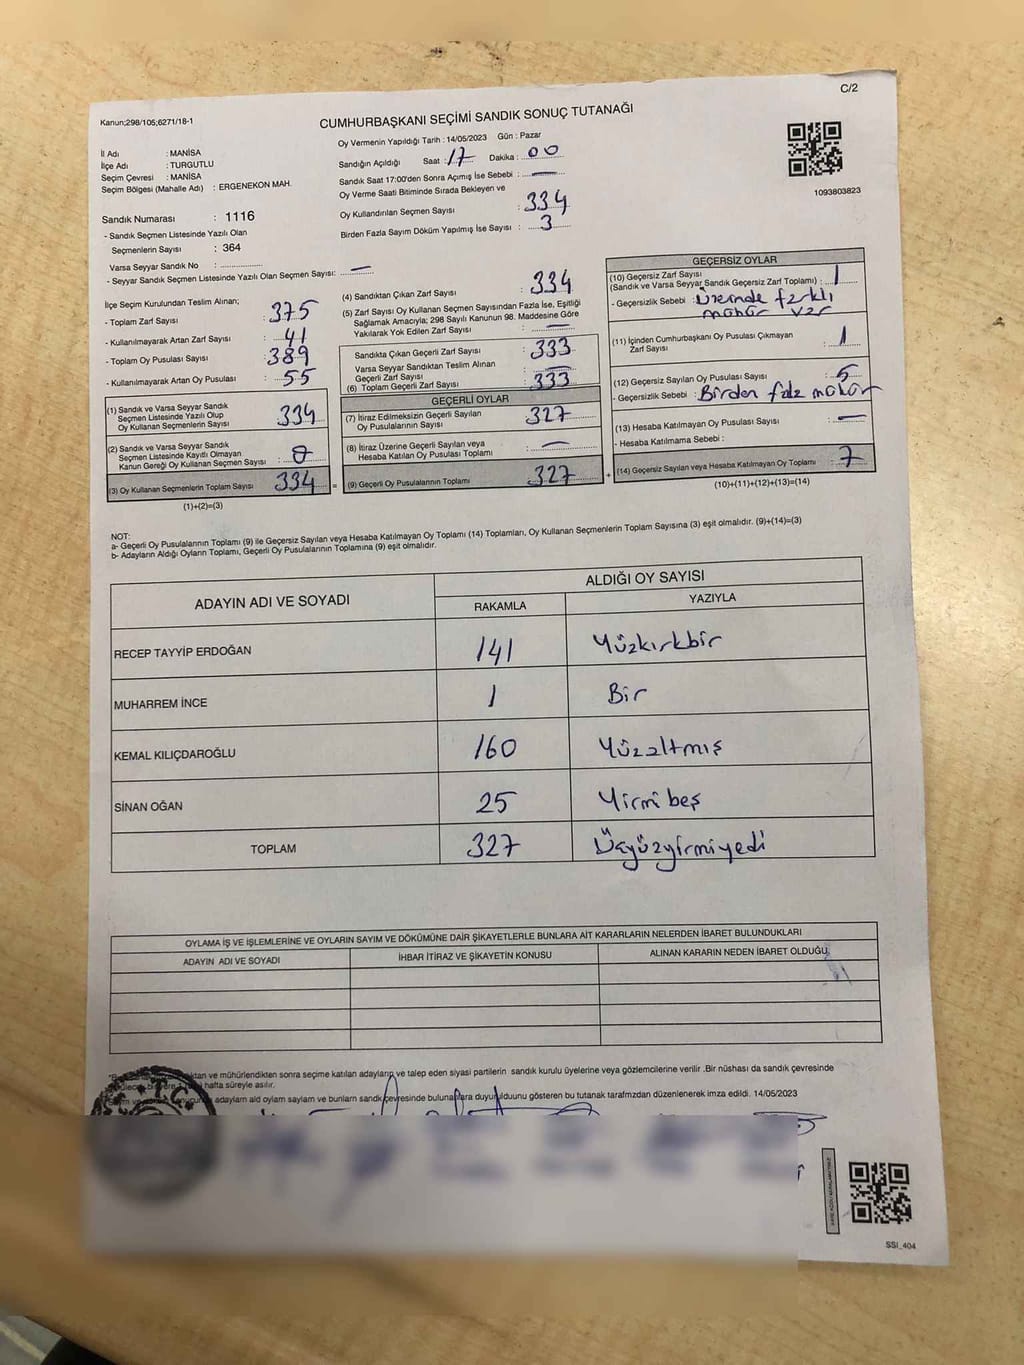 C/2
Kanun;298/105;6271/18-1
CUMHURBAŞKANI SEÇİMİ SANDIK SONUÇ TUTANAĞI
İl Adı : MANİSA
İlçe Adı : TURGUTLU
Seçim Çevresi : MANİSA
Seçim Bölgesi (Mahalle Adı) : ERGENEKON MAH.
Sandık Numarası : 1116
- Sandık Seçmen Listesinde Yazılı Olan
Seçmenlerin Sayısı : 364
Varsa Seyyar Sandık No :
- Seyyar Sandık Seçmen Listesinde Yazılı Olan Seçmen Sayısı: —
Oy Vermenin Yapıldığı Tarih : 14/05/2023 Gün : Pazar
Sandığın Açıldığı Saat : 17 Dakika : 00
Sandık Saat 17:00'den Sonra Açımış İse Sebebi : —
Oy Verme Saati Bitiminde Sırada Bekleyen ve
Oy Kullandırılan Seçmen Sayısı : 334
Birden Fazla Sayım Döküm Yapılmış İse Sayısı : 3
1093803823
İlçe Seçim Kurulundan Teslim Alınan;
- Toplam Zarf Sayısı : 375
- Kullanılmayarak Artan Zarf Sayısı : 41
- Toplam Oy Pusulası Sayısı : 389
- Kullanılmayarak Artan Oy Pusulası : 55
(1) Sandık ve Varsa Seyyar Sandık
Seçmen Listesinde Yazılı Olup
Oy Kullanan Seçmenlerin Sayısı : 334
(2) Sandık ve Varsa Seyyar Sandık
Seçmen Listesinde Kayıtlı Olmayan
Kanun Gereği Oy Kullanan Seçmen Sayısı : 0
(3) Oy Kullanan Seçmenlerin Toplam Sayısı 334 =
(1)+(2)=(3)
(4) Sandıktan Çıkan Zarf Sayısı : 334
(5) Zarf Sayısı Oy Kullanan Seçmen Sayısından Fazla İse, Eşitliği
Sağlamak Amacıyla; 298 Sayılı Kanunun 98. Maddesine Göre
Yakılarak Yok Edilen Zarf Sayısı : —
Sandıkta Çıkan Geçerli Zarf Sayısı : 333
Varsa Seyyar Sandıktan Teslim Alınan
Geçerli Zarf Sayısı : —
(6) Toplam Geçerli Zarf Sayısı : 333
GEÇERLİ OYLAR
(7) İtiraz Edilmeksizin Geçerli Sayılan
Oy Pusulalarının Sayısı : 327
(8) İtiraz Üzerine Geçerli Sayılan veya
Hesaba Katılan Oy Pusulası Toplamı : —
(9) Geçerli Oy Pusulalarının Toplamı 327 +
GEÇERSİZ OYLAR
(10) Geçersiz Zarf Sayısı
(Sandık ve Varsa Seyyar Sandık Geçersiz Zarf Toplamı) : 1
- Geçersizlik Sebebi : Üzerinde farklı
mühür var
(11) İçinden Cumhurbaşkanı Oy Pusulası Çıkmayan
Zarf Sayısı : 1
(12) Geçersiz Sayılan Oy Pusulası Sayısı : 5
- Geçersizlik Sebebi : Birden fazla mühür
(13) Hesaba Katılmayan Oy Pusulası Sayısı : —
- Hesaba Katılmama Sebebi :
(14) Geçersiz Sayılan veya Hesaba Katılmayan Oy Toplamı : 7
(10)+(11)+(12)+(13)=(14)
NOT:
a- Geçerli Oy Pusulalarının Toplamı (9) ile Geçersiz Sayılan veya Hesaba Katılmayan Oy Toplamı (14) Toplamları, Oy Kullanan Seçmenlerin Toplam Sayısına (3) eşit olmalıdır. (9)+(14)=(3)
b- Adayların Aldığı Oyların Toplamı, Geçerli Oy Pusulalarının Toplamına (9) eşit olmalıdır.
ADAYIN ADI VE SOYADI
ALDIĞI OY SAYISI
RAKAMLA YAZIYLA
RECEP TAYYİP ERDOĞAN 141 Yüzkırkbir
MUHARREM İNCE 1 Bir
KEMAL KILIÇDAROĞLU 160 Yüzaltmış
SİNAN OĞAN 25 Yirmibeş
TOPLAM 327 Üçyüzyirmiyedi
OYLAMA İŞ VE İŞLEMLERİNE VE OYLARIN SAYIM VE DÖKÜMÜNE DAİR ŞİKAYETLERLE BUNLARA AİT KARARLARIN NELERDEN İBARET BULUNDUKLARI
ADAYIN ADI VE SOYADI İHBAR İTİRAZ VE ŞİKAYETİN KONUSU ALINAN KARARIN NEDEN İBARET OLDUĞU
ve mühürlendikten sonra seçime katılan adayların ve talep eden siyasi partilerin sandık kurulu üyelerine veya gözlemcilerine verilir .Bir nüshası da sandık çevresinde
hafta süreyle asılır.
adaylam ald oylam saylam ve bunlarn sandk çevresinde bulunanlara duyurulduunu gösteren bu tutanak tarafmzdan düzenlenerek imza edildi. 14/05/2023
T.C.
SSI_404